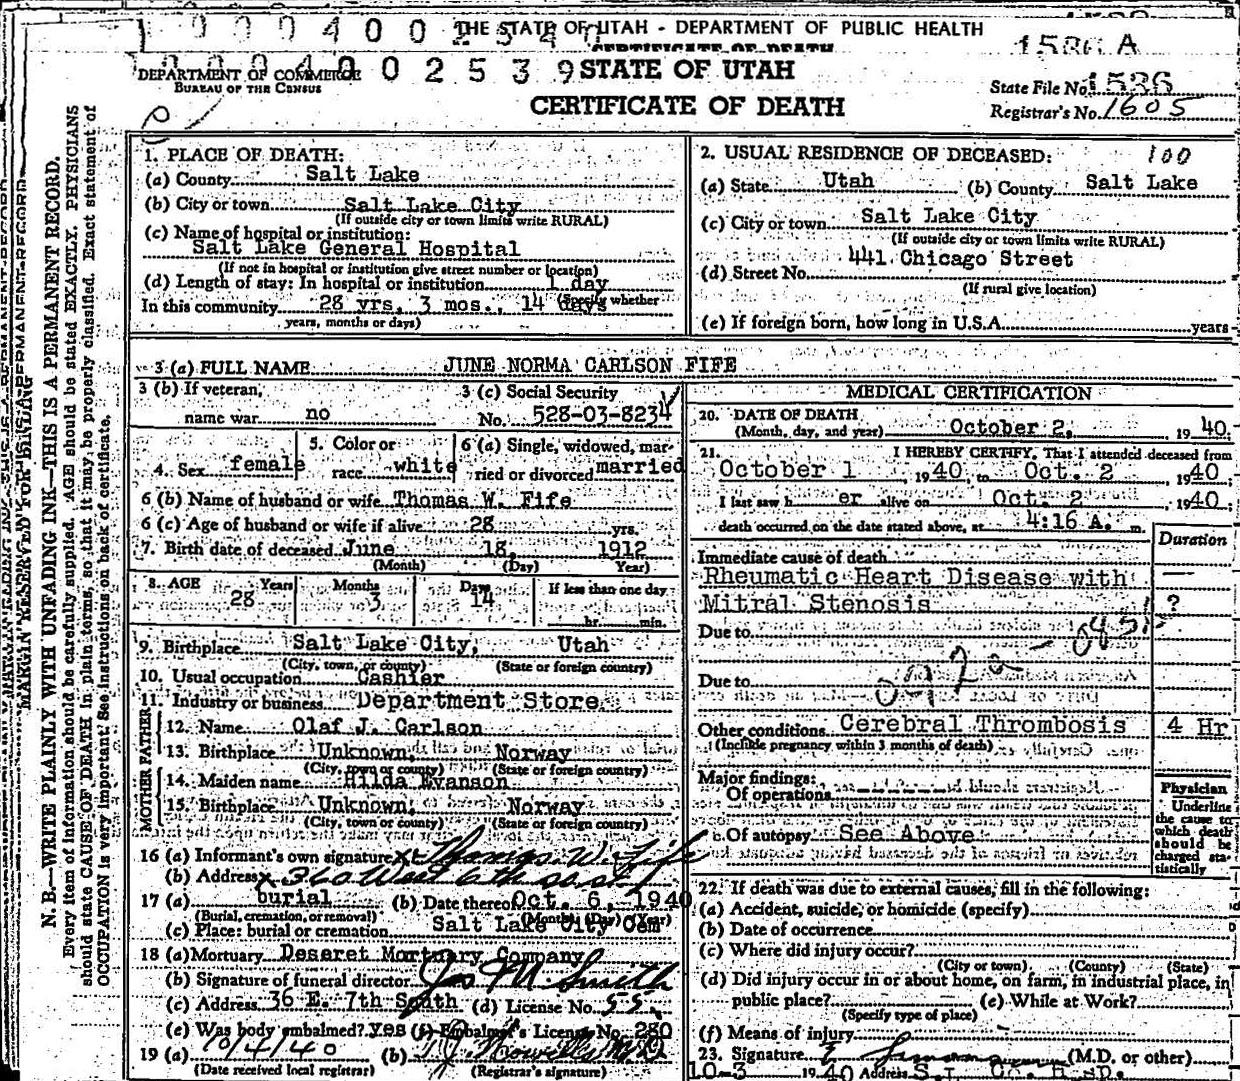 THE STATE OF UTAH - DEPARTMENT OF PUBLIC HEALTH
CERTIFICATE OF DEATH
1000400 2539
1536 A
DEPARTMENT OF COMMERCE
BUREAU OF THE CENSUS
STATE OF UTAH
CERTIFICATE OF DEATH
State File No. 1536
Registrar's No. 1605
MARGIN RESERVED FOR BINDING
N. B.—WRITE PLAINLY WITH UNFADING INK—THIS IS A PERMANENT RECORD.
Every item of information should be carefully supplied. AGE should be stated EXACTLY. PHYSICIANS
should state CAUSE OF DEATH in plain terms, so that it may be properly classified. Exact statement of
OCCUPATION is very important. See instructions on back of certificate.
1. PLACE OF DEATH:
(a) County Salt Lake
(b) City or town Salt Lake City
(If outside city or town limits write RURAL)
(c) Name of hospital or institution:
Salt Lake General Hospital
(If not in hospital or institution give street number or location)
(d) Length of stay: In hospital or institution 1 day
(Specify whether
In this community 28 yrs. 3 mos., 14 days
years, months or days)
2. USUAL RESIDENCE OF DECEASED: 100
(a) State Utah (b) County Salt Lake
(c) City or town Salt Lake City
(If outside city or town limits write RURAL)
(d) Street No. 441 Chicago Street
(If rural give location)
(e) If foreign born, how long in U.S.A. years
3 (a) FULL NAME JUNE NORMA CARLSON FIFE
3 (b) If veteran,
name war no
3 (c) Social Security
No. 528-03-8234
4. Sex female
5. Color or
race white
6 (a) Single, widowed, mar-
ried or divorced married
6 (b) Name of husband or wife Thomas W. Fife
6 (c) Age of husband or wife if alive 28 yrs.
7. Birth date of deceased June 18, 1912
(Month) (Day) Year)
8. AGE Years 28 Months 3 Days 14 If less than one day
hr. min.
9. Birthplace Salt Lake City, Utah
(City, town, or county) (State or foreign country)
10. Usual occupation Cashier
11. Industry or business Department Store
FATHER
12. Name Olaf J. Carlson
13. Birthplace Unknown, Norway
(City, town or county) (State or foreign country)
MOTHER
14. Maiden name Hilda Evanson
15. Birthplace Unknown, Norway
(City, town or county) (State or foreign country)
16 (a) Informant's own signature Thomas W. Fife
(b) Address 360 West 6th So. St.
17 (a) burial (b) Date thereof Oct. 6, 1940
(Burial, cremation, or removal) (Month) (Day) (Year)
(c) Place: burial or cremation Salt Lake City Cem
18 (a) Mortuary Deseret Mortuary Company
(b) Signature of funeral director Jos M. Smith
(c) Address 36 E. 7th South (d) License No. 55
(e) Was body embalmed? yes (f) Embalmer's License No. 280
19 (a) 10/4/40 (b)
(Date received local registrar) (Registrar's signature)
MEDICAL CERTIFICATION
20. DATE OF DEATH
(Month, day, and year) October 2, 1940
21. I HEREBY CERTIFY, That I attended deceased from
October 1, 1940, to Oct. 2, 1940
I last saw h er alive on Oct. 2, 1940
death occurred on the date stated above, at 4:16 A. m.
Duration
Immediate cause of death
Rheumatic Heart Disease with —
Mitral Stenosis ?
Due to
Due to
092a
Other conditions Cerebral Thrombosis 4 Hr
(Include pregnancy within 3 months of death)
Major findings:
Of operations
Of autopsy See Above
Physician
Underline
the cause to
which death
should be
charged sta-
tistically
22. If death was due to external causes, fill in the following:
(a) Accident, suicide, or homicide (specify)
(b) Date of occurrence
(c) Where did injury occur?
(City or town) (County) (State)
(d) Did injury occur in or about home, on farm, in industrial place, in
public place? (e) While at Work?
(Specify type of place)
(f) Means of injury
23. Signature (M.D. or other)
10-3 1940 Address S.L. Co.